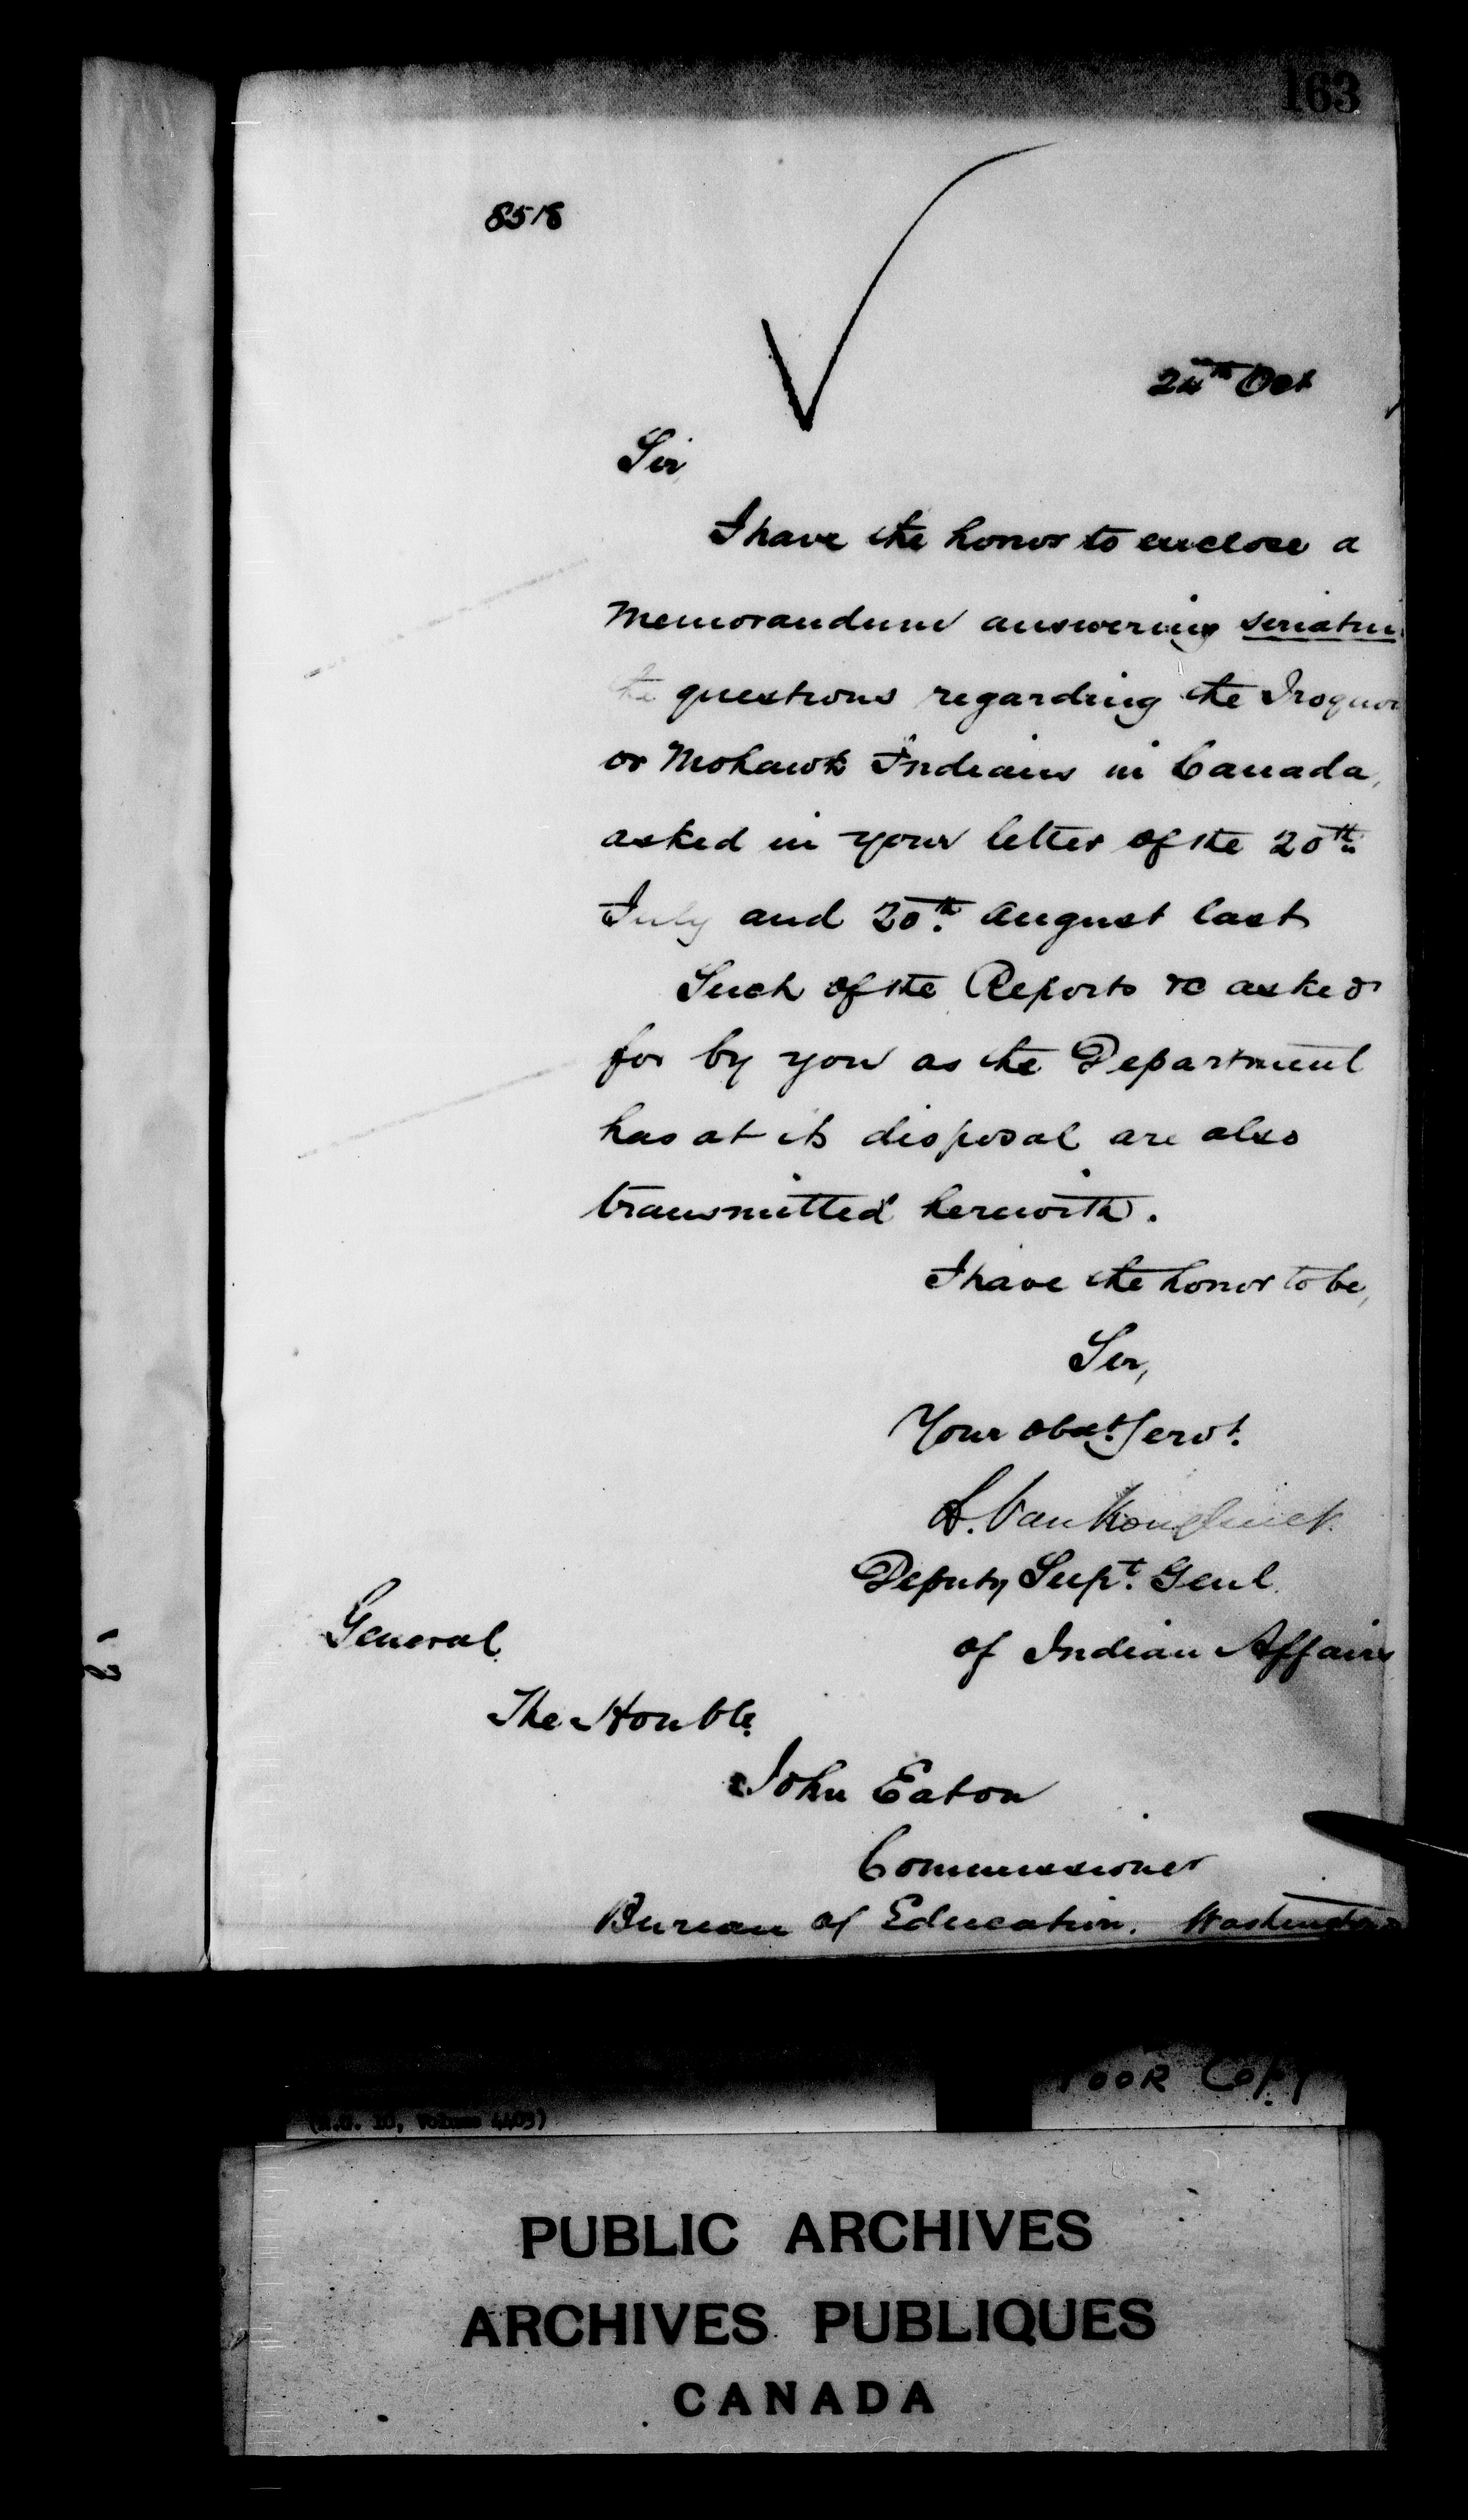 163
8518
24th Oct
Sir,
I have the honor to enclose a
Memorandum answering seriatim
the questions regarding the Iroquois
or Mohawk Indians in Canada,
asked in your letter of the 20th
July and 20th August last
Such of the Reports &c asked
for by you as the Department
has at its disposal are also
transmitted herewith.
I have the honor to be,
Sir,
Your obedt. Servt.
L. VanKoughnet
Deputy Supt. Genl.
of Indian Affairs
General
The Honble.
John Eaton
Commissioner
Bureau of Education. Washington
POOR COPY
(R.G. 10, Volume 4469)
PUBLIC ARCHIVES
ARCHIVES PUBLIQUES
CANADA